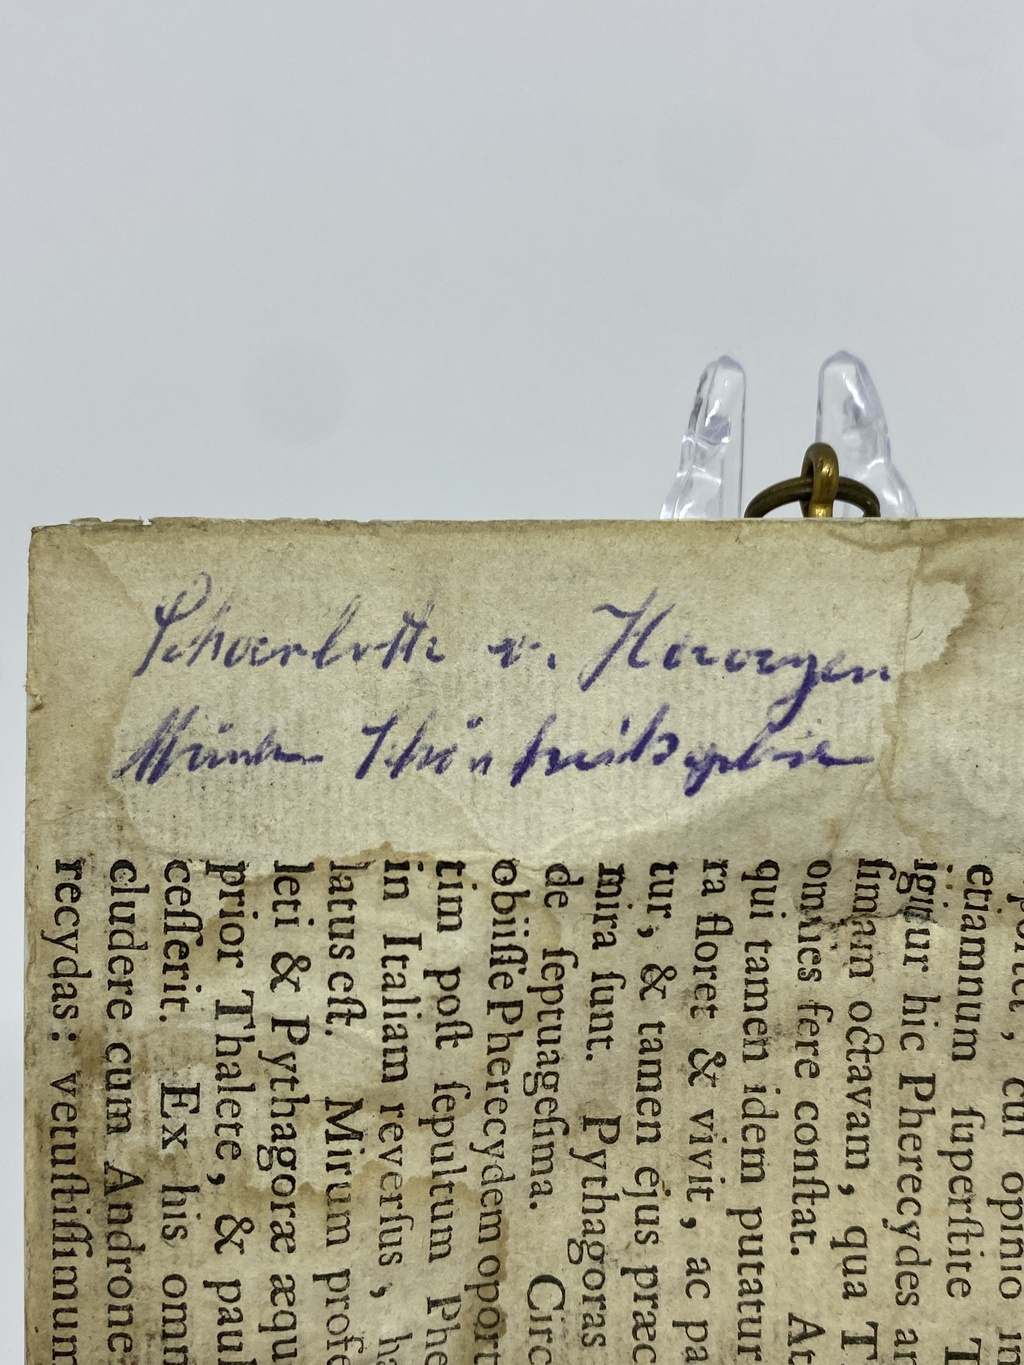 Charlotte v.
Schönheitsgalerie
, cui opinio in
etiamnum ſuperſtite T
igitur hic Pherecydes an
ſimam octavam, qua T
omnes fere conſtat. At
qui tamen idem putatur
ra floret & vivit, ac pa
tur, & tamen ejus præc
mira ſunt. Pythagoras
de ſeptuageſima. Circ
obiiſſe Pherecydem oport
tim poſt ſepultum Phe
in Italiam reverſus, ha
latus eſt. Mirum profe
leti & Pythagoræ æqu
prior Thalete, & paul
ceſſerit. Ex his omn
cludere cum Androne
recydas: vetuſtiſſimum